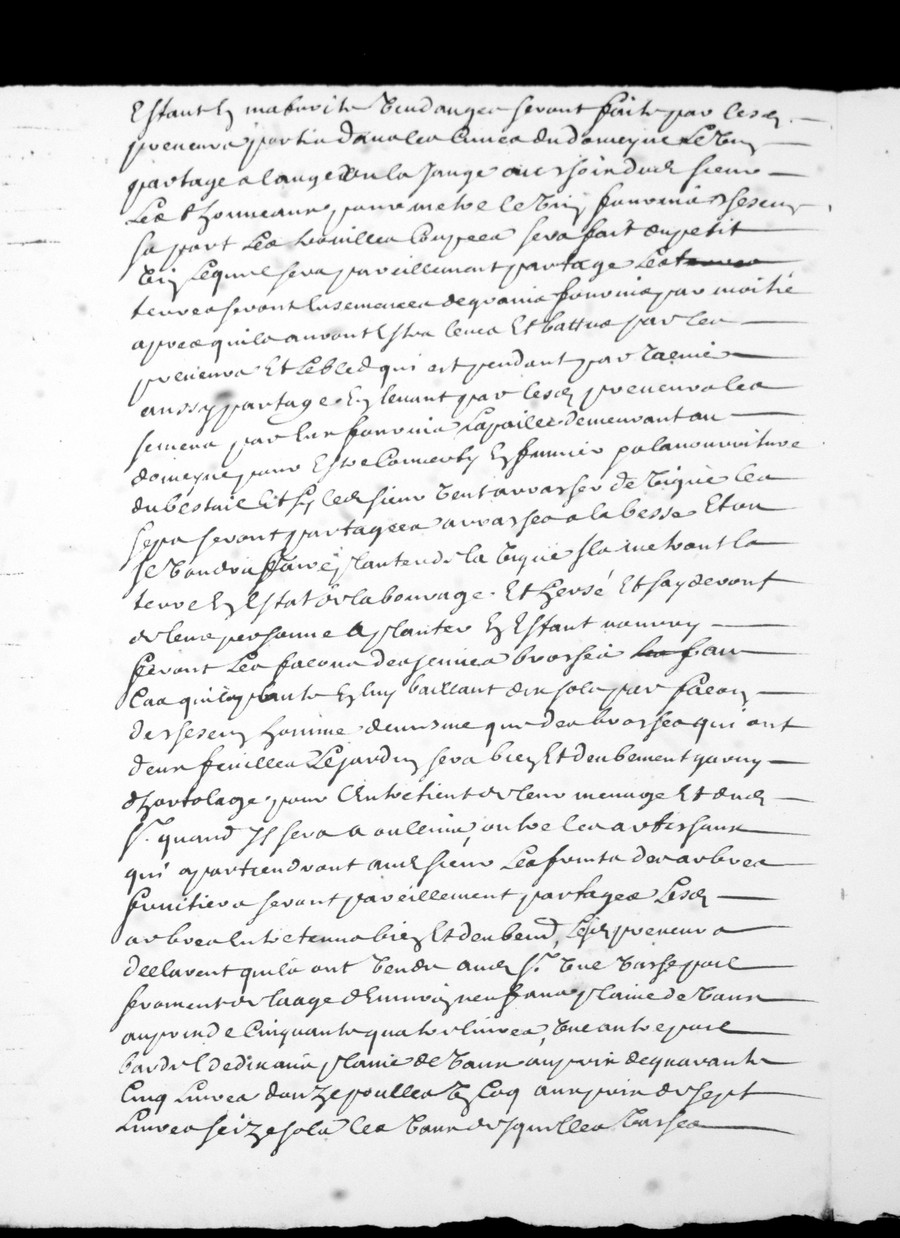 Estant En maturite Vendanges seront faite par lesd
preneurs partie dans les Cuves du domeyne le Vin
partage a l auge ou la Jauge au soin dud sieur
Les thonneaux pour metre le Vin fournis
sa part Les trouilles Couppees sera fait du petit
Vin Lequel sera pareillement partage Les
terres seront Ensemences de grains fournis par moitié
apres quils auront Estes leves Et battus par les
preneurs Et Le bled qui est pendant par racine
aussy partage En levant par lesd preneurs les
semera par Eux fournis La paille demeurant au
domeyne pour Estre Convertye En fumier p la nourriture
du bestail Et sy led sieur Veut arracher de Vigne les
seps seront partagees arraches a la besse Et ou
Se Voudra faire planter de la Vigne Ils metront la
terre En Estat de labourage Et hersé Et Ayderont
de leur personne a planter En Estant nourry
feront Les facons des jeunes brosses
quil plante En luy baillant dix sols par facon
homme de mesme que des brosses qui ont
deux feuilles Le jardin sera bien Et deubement garny
d hortolage pour l Entretient de leur menage Et dud
Sr. quand Il sera a outre les artissaux
qui apartiendront aud sieur Les fruits des arbres
fruitiers seront pareillement partages Lesd
arbres Entretenus bien Et deubemt, Lesd preneurs
declarent quils ont Vendu aud Sr. Une Vasse poil
froment de laage d Environ neuf ans plaine de Vaux
au prix de Cinquante quatre Livres, Une autre poil
bardel de dix ans plaine de Vaux au prix de quarante
Cinq Livres douze poulles Un Coq au prix de sept
Livres seize sols les Vaux desquelles Vasses